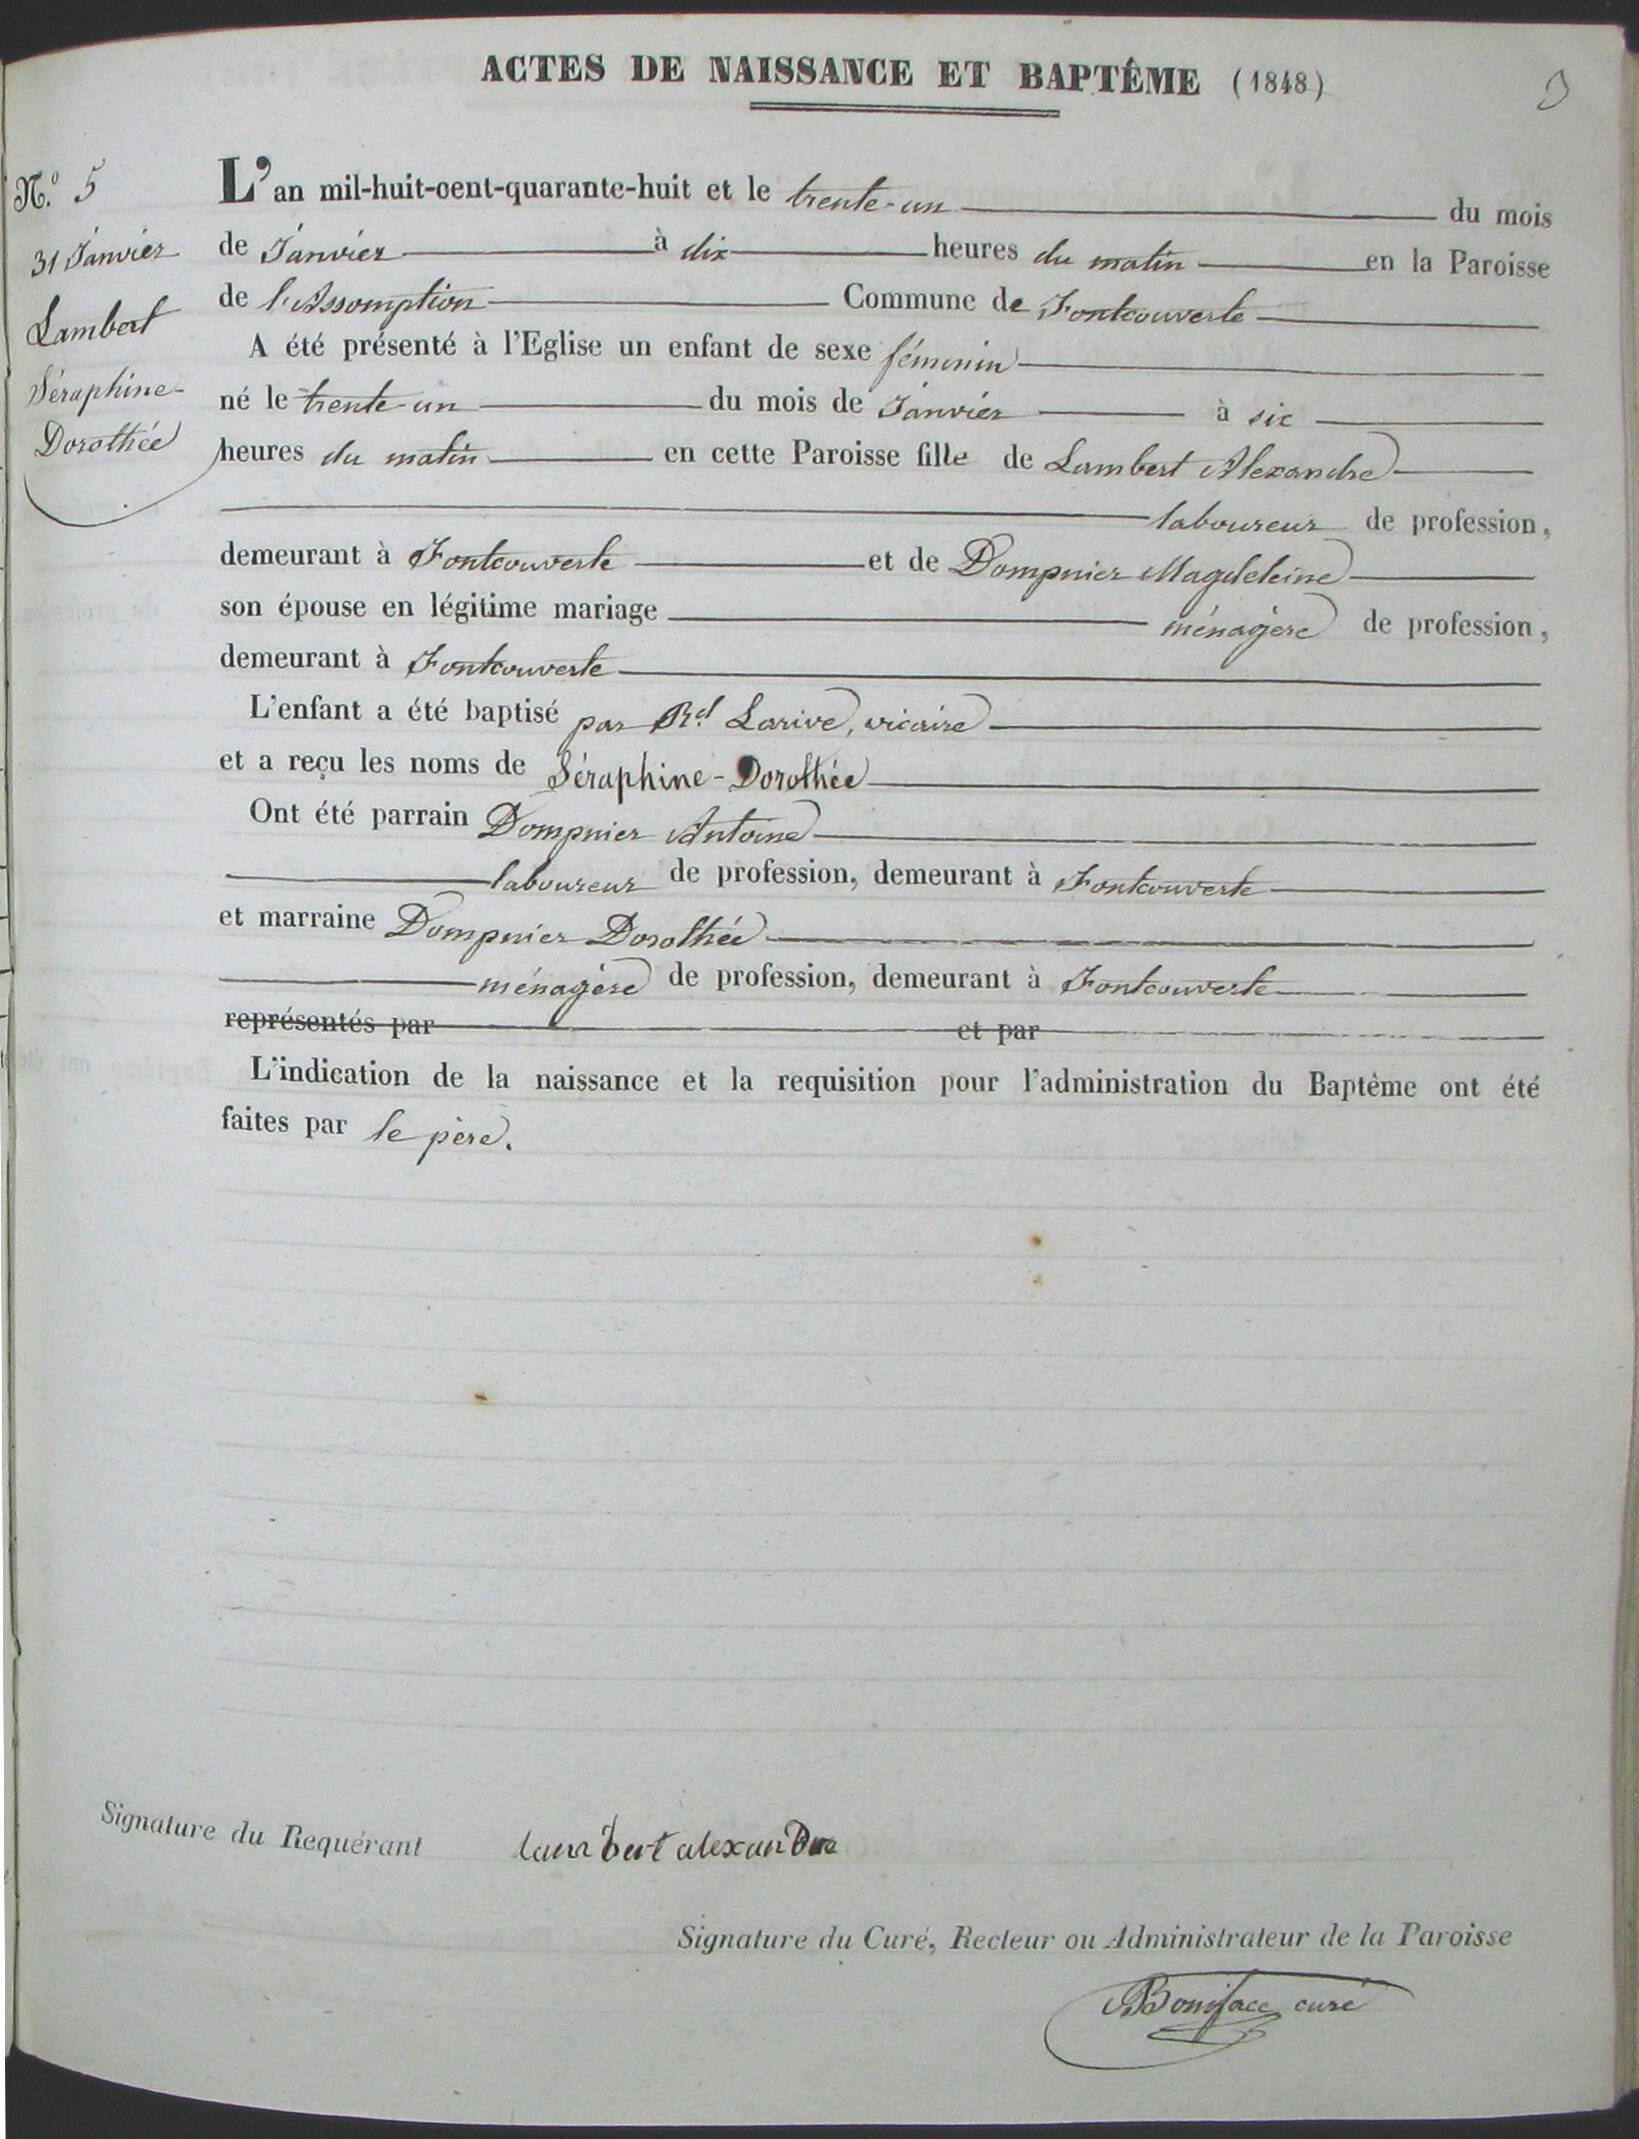 ACTES DE NAISSANCE ET BAPTÊME (1848)
N.º 5
31 Janvier
Lambert
Séraphine-
Dorothée
L'an mil-huit-cent-quarante-huit et le trente-un du mois
de Janvier à dix heures du matin en la Paroisse
de l'Assomption Commune de Fontcouverte
A été présenté à l'Eglise un enfant de sexe féminin
né le trente-un du mois de Janvier à six
heures du matin en cette Paroisse fille de Lambert Alexandre
laboureur de profession,
demeurant à Fontcouverte et de Dompnier Magdeleine
son épouse en légitime mariage ménagère de profession,
demeurant à Fontcouverte
L'enfant a été baptisé par Rd Larive, vicaire
et a reçu les noms de Séraphine-Dorothée
Ont été parrain Dompnier Antoine
laboureur de profession, demeurant à Fontcouverte
et marraine Dompnier Dorothée
ménagère de profession, demeurant à Fontcouverte
représentés par et par
L'indication de la naissance et la requisition pour l'administration du Baptême ont été
faites par le père.
Signature du Requérant lambert alexandre
Signature du Curé, Recteur ou Administrateur de la Paroisse
Boniface curé